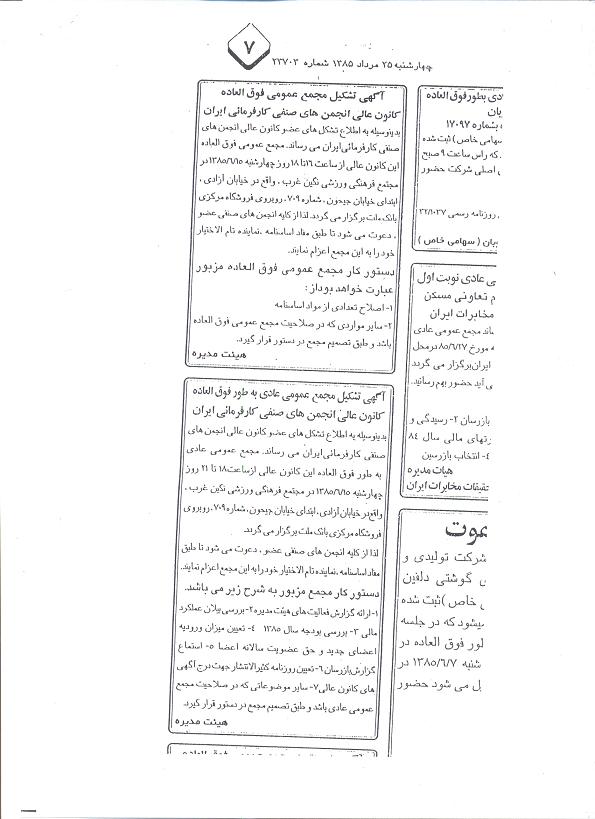 ۷
چهارشنبه ۲۵ مرداد ۱۳۸۵ شماره ۲۳۷۰۳
آگهی تشکیل مجمع عمومی فوق العاده
کانون عالی انجمن های صنفی کارفرمائی ایران
بدینوسیله به اطلاع تشکل های عضو کانون عالی انجمن های
صنفی کارفرمائی ایران می رساند. مجمع عمومی فوق العاده
این کانون عالی از ساعت ۱۶ تا ۱۸ روز چهارشنبه ۱۳۸۵/۶/۱۵ در
مجتمع فرهنگی ورزشی نگین غرب ، واقع در خیابان آزادی ،
ابتدای خیابان جیحون ، شماره ۷۰۹، روبروی فروشگاه مرکزی
بانک ملت برگزار می گردد. لذا از کلیه انجمن های صنفی عضو
، دعوت می شود تا طبق مفاد اساسنامه ، نماینده تام الاختیار
خود را به این مجمع اعزام نمایند.
دستور کار مجمع عمومی فوق العاده مزبور
عبارت خواهد بود از :
۱- اصلاح تعدادی از مواد اساسنامه
۲- سایر مواردی که در صلاحیت مجمع عمومی فوق العاده
باشد و طبق تصمیم مجمع در دستور قرار گیرد.
هیئت مدیره
آگهی تشکیل مجمع عمومی عادی به طور فوق العاده
کانون عالی انجمن های صنفی کارفرمائی ایران
بدینوسیله به اطلاع تشکل های عضو کانون عالی انجمن های
صنفی کارفرمائی ایران می رساند. مجمع عمومی عادی
به طور فوق العاده این کانون عالی از ساعت ۱۸ تا ۲۱ روز
چهارشنبه ۱۳۸۵/۶/۱۵ در مجتمع فرهنگی ورزشی نگین غرب ،
واقع در خیابان آزادی، ابتدای خیابان جیحون، شماره ۷۰۹، روبروی
فروشگاه مرکزی بانک ملت برگزار می گردد.
لذا از کلیه انجمن های صنفی عضو ، دعوت می شود تا طبق
مفاد اساسنامه ، نماینده تام الاختیار خود را به این مجمع اعزام نمایند.
دستور کار مجمع مزبور به شرح زیر می باشد.
۱- ارائه گزارش فعالیت های هیئت مدیره ۲- بررسی بیلان عملکرد
مالی ۳- بررسی بودجه سال ۱۳۸۵ ۴- تعیین میزان ورودیه
اعضای جدید و حق عضویت سالانه اعضا ۵- استماع
گزارش بازرسان ۶- تعیین روزنامه کثیرالانتشار جهت درج آگهی
های کانون عالی ۷- سایر موضوعاتی که در صلاحیت مجمع
عمومی عادی باشد و طبق تصمیم مجمع در دستور قرار گیرد.
هیئت مدیره
دی بطور فوق العاده
یان
بشماره ۱۷۰۹۷
سهامی خاص ) ثبت شده
که راس ساعت ۹ صبح
اصلی شرکت حضور
روزنامه رسمی ۲۲/۱۰۳۷
یان ( سهامی خاص )
ی عادی نوبت اول
م تعاونی مسکن
مخابرات ایران
ساند مجمع عمومی عادی
ه مورخ ۸۵/۶/۲۷ در محل
ایران برگزار می گردد
ی آید حضور بهم رسانید.
بازرسان ۲- رسیدگی و
رتهای مالی سال ۸۴
۴- انتخاب بازرسین
هیات مدیره
تحقیقات مخابرات ایران
موت
شرکت تولیدی و
ی گوشتی دلفین
خاص ) ثبت شده
یشود که در جلسه
لور فوق العاده در
شنبه ۱۳۸۵/۶/۷ در
یل می شود حضور